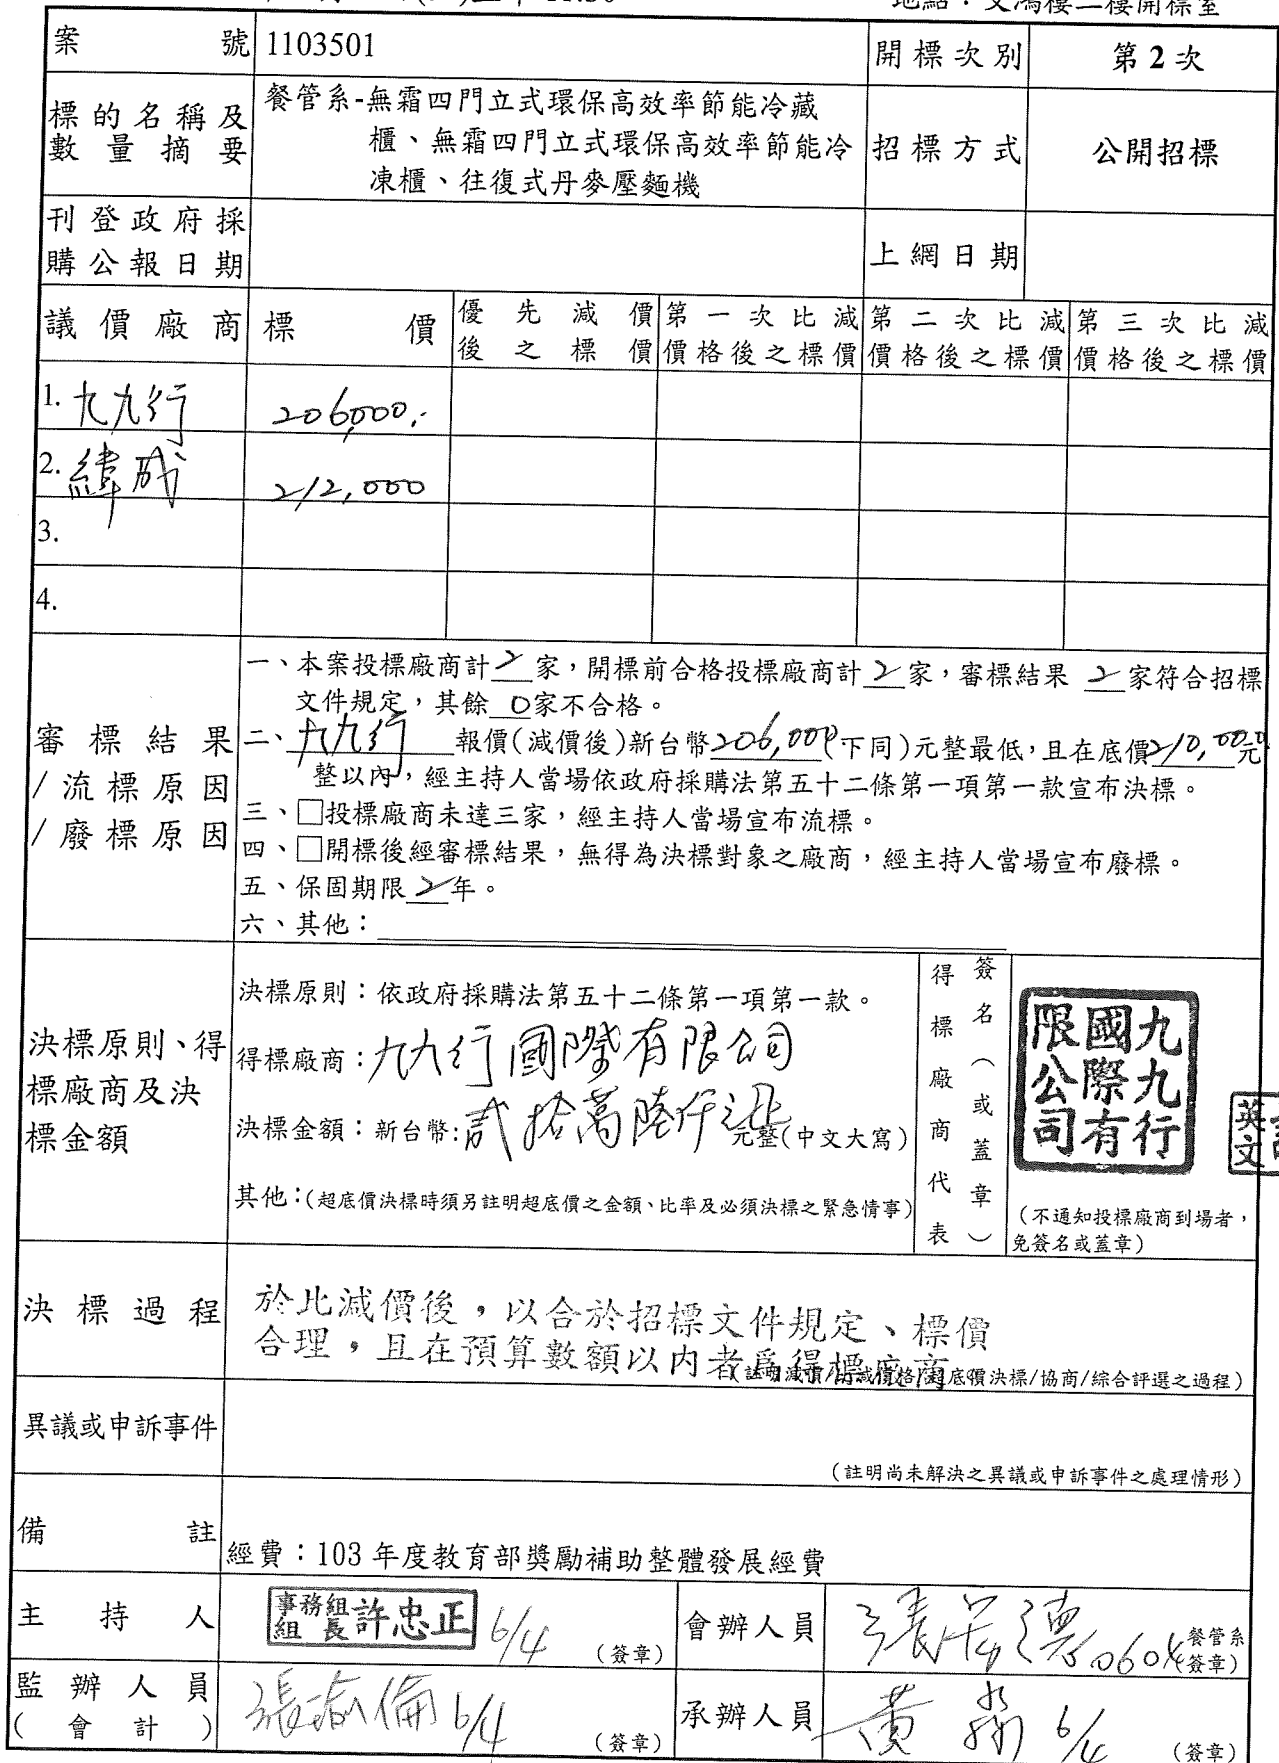 地點：文鴻樓二樓開標室
案號 1103501 開標次別 第2次
標的名稱及數量摘要
餐管系-無霜四門立式環保高效率節能冷藏
櫃、無霜四門立式環保高效率節能冷
凍櫃、往復式丹麥壓麵機
招標方式 公開招標
刊登政府採
購公報日期
上網日期
議價廠商 標價
優先減價
後之標價
第一次比減
價格後之標價
第二次比減
價格後之標價
第三次比減
價格後之標價
1. 九九行 206,000.-
2. 緯成 212,000
3.
4.
審標結果
/流標原因
/廢標原因
一、本案投標廠商計2家，開標前合格投標廠商計2家，審標結果 2家符合招標
文件規定，其餘 0家不合格。
二、九九行 報價(減價後)新台幣206,000(下同)元整最低，且在底價210,000元
整以內，經主持人當場依政府採購法第五十二條第一項第一款宣布決標。
三、□投標廠商未達三家，經主持人當場宣布流標。
四、□開標後經審標結果，無得為決標對象之廠商，經主持人當場宣布廢標。
五、保固期限2年。
六、其他：
決標原則、得
標廠商及決
標金額
決標原則：依政府採購法第五十二條第一項第一款。
得標廠商：九九行國際有限公司
決標金額：新台幣：貳拾萬陸仟元整(中文大寫)
其他：(超底價決標時須另註明超底價之金額、比率及必須決標之緊急情事)
得標廠商代表
簽名（或蓋章）
九九行
國際有
限公司
英文
(不通知投標廠商到場者，
免簽名或蓋章)
決標過程
於比減價後，以合於招標文件規定、標價
合理，且在預算數額以內者為得標廠商。
(註明減價/比減價格/超底價決標/協商/綜合評選之過程)
異議或申訴事件
(註明尚未解決之異議或申訴事件之處理情形)
備註
經費：103 年度教育部獎勵補助整體發展經費
主持人
事務組
組長 許忠正 6/4 (簽章)
會辦人員
0604 餐管系
(簽章)
監辦人員
(會計)
張瑜倫 6/4 (簽章)
承辦人員
黃 6/4 (簽章)